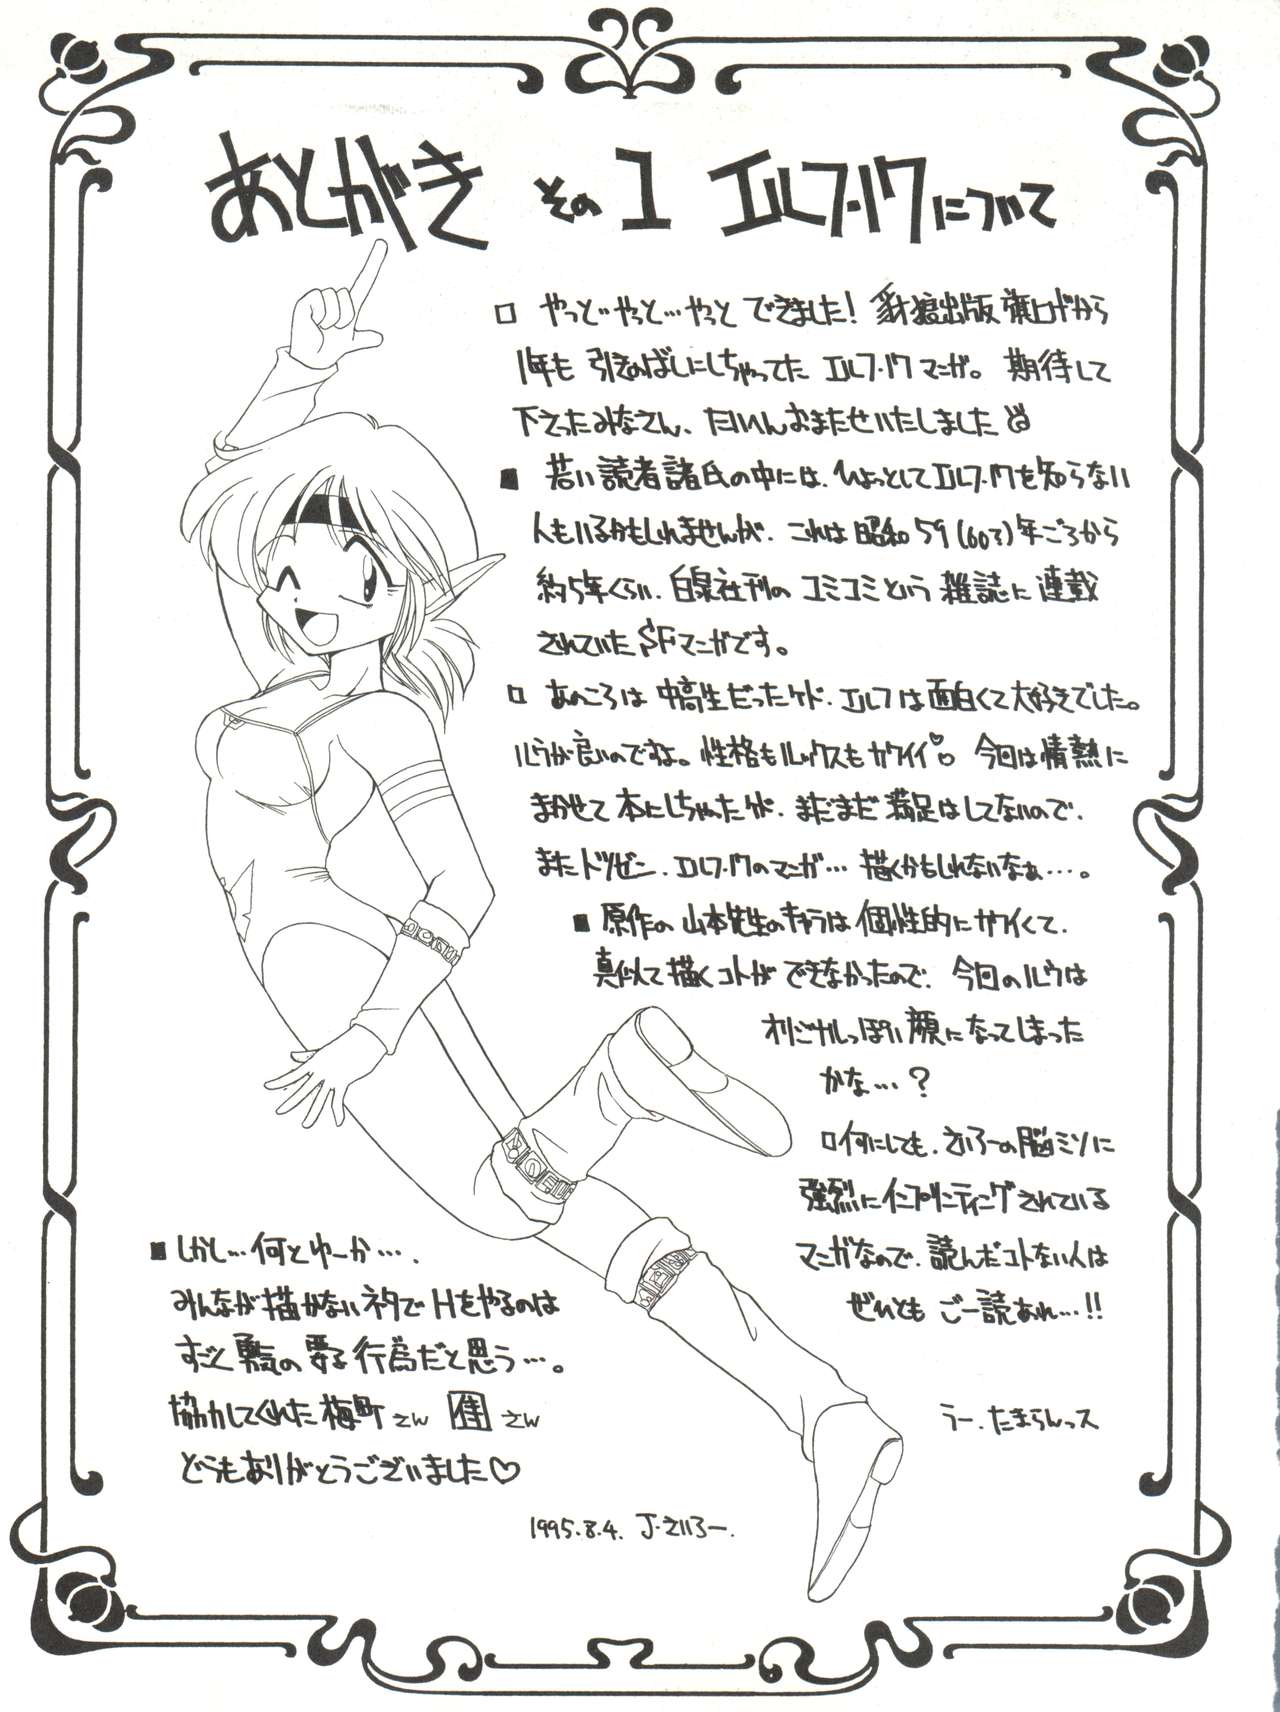 あとがき その1 エルフ・17について
□ やっと…やっと…やっと できました! 豺狼出版旗上げから
1年も 引きのばしにしちゃってた エルフ・17マンガ。 期待して
下さったみなさん、たいへんおまたせいたしました
■ 若い読者諸氏の中には、ひょっとしてエルフ・17を知らない
人もいるかもしれませんが、これは昭和59(60?)年ごろから
約5年くらい、白泉社刊の コミコミという 雑誌に連載
されていたSFマンガです。
□ あのころは 中高生だったケド、エルフは面白くて大好きでした。
ルウが良いのですよ。性格もルックスもカワイイ♡。今回は情熱に
まかせて 本にしちゃったけど、まだまだ 満足はしてないので、
またトツゼン、エルフ・17のマンガ… 描くかもしれないなぁ…。
■ 原作の 山本先生のキャラは 個性的にカワイくて、
真似て描くコトが できなかったので、今回のルウは
オリジナルっぽい顔になってしまった
かな…?
□何にしても、さいろーの脳ミソに
強烈にインプリンティングされている
マンガなので、読んだコトない人は
ぜひとも ご一読あれ…!!
うー、たまらんっス
■しかし… 何とゆーか…、
みんなが描かないネタでHをやるのは
すごく勇気の要る行為だと思う…。
協力してくれた 梅町さん 佳さん
どうもありがとうございました♡
1995.8.4. J・さいろー.